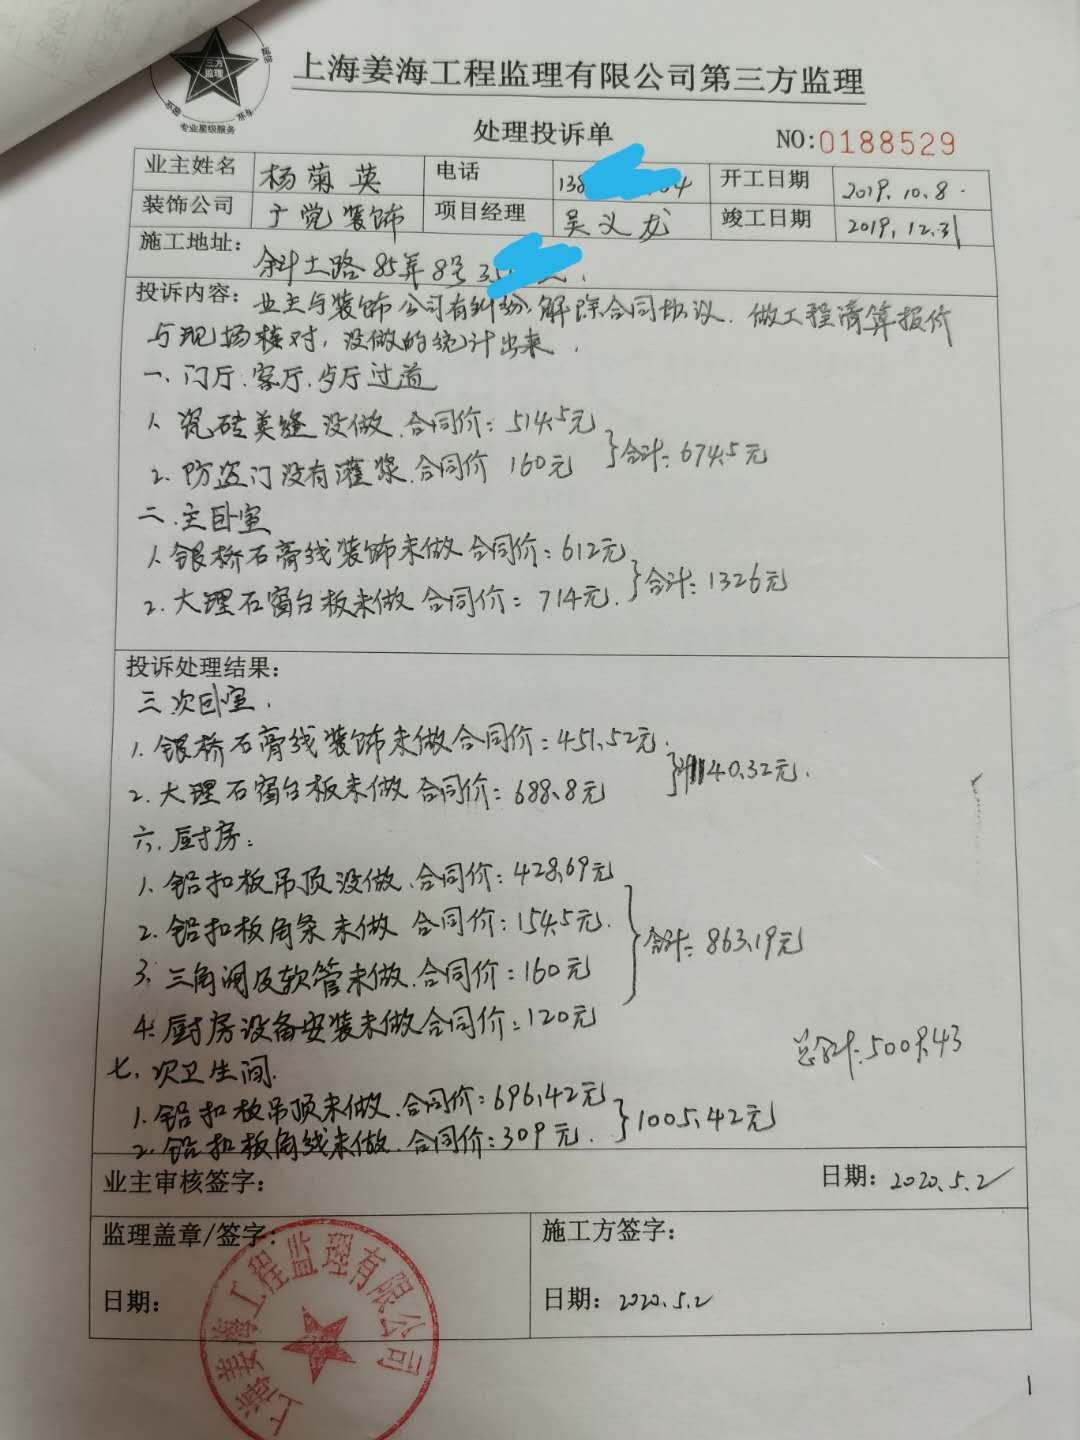 三方
监理
专业星级服务
上海姜海工程监理有限公司第三方监理
处理投诉单
NO:0188529
业主姓名 杨菊英 电话 138 04 开工日期 2019.10.8.
装饰公司 广党装饰 项目经理 吴义龙 竣工日期 2019.12.31
施工地址: 斜土路85弄8号35
投诉内容: 业主与装饰公司有纠纷.解除合同协议.做工程清算报价
与现场核对,没做的统计出来.
一、门厅.客厅.歺厅过道
1、瓷砖美缝没做.合同价:514.5元
2.防盗门没有灌浆.合同价 160元 }合计:674.5元
二.主卧室
1.银桥石膏线装饰未做 合同价:612元
2.大理石窗台板未做 合同价:714元. }合计:1326元
投诉处理结果:
三.次卧室.
1.银桥石膏线装饰未做合同价:451.52元.
2.大理石窗台板未做 合同价:688.8元 }1140.32元.
六.厨房:
1.铝扣板吊顶没做.合同价:428.69元
2.铝扣板角条未做 合同价:154.5元.
3.三角阀及软管未做.合同价:160元 }合计:863.19元
4.厨房设备安装未做合同价:120元
总合计:5009.43
七.次卫生间.
1.铝扣板吊顶未做.合同价:696.42元
2.铝扣板角线未做.合同价:309元. }1005.42元
业主审核签字: 日期:2020.5.2
监理盖章/签字: 施工方签字:
日期: 日期:2020.5.2
上海姜海工程监理有限公司
1